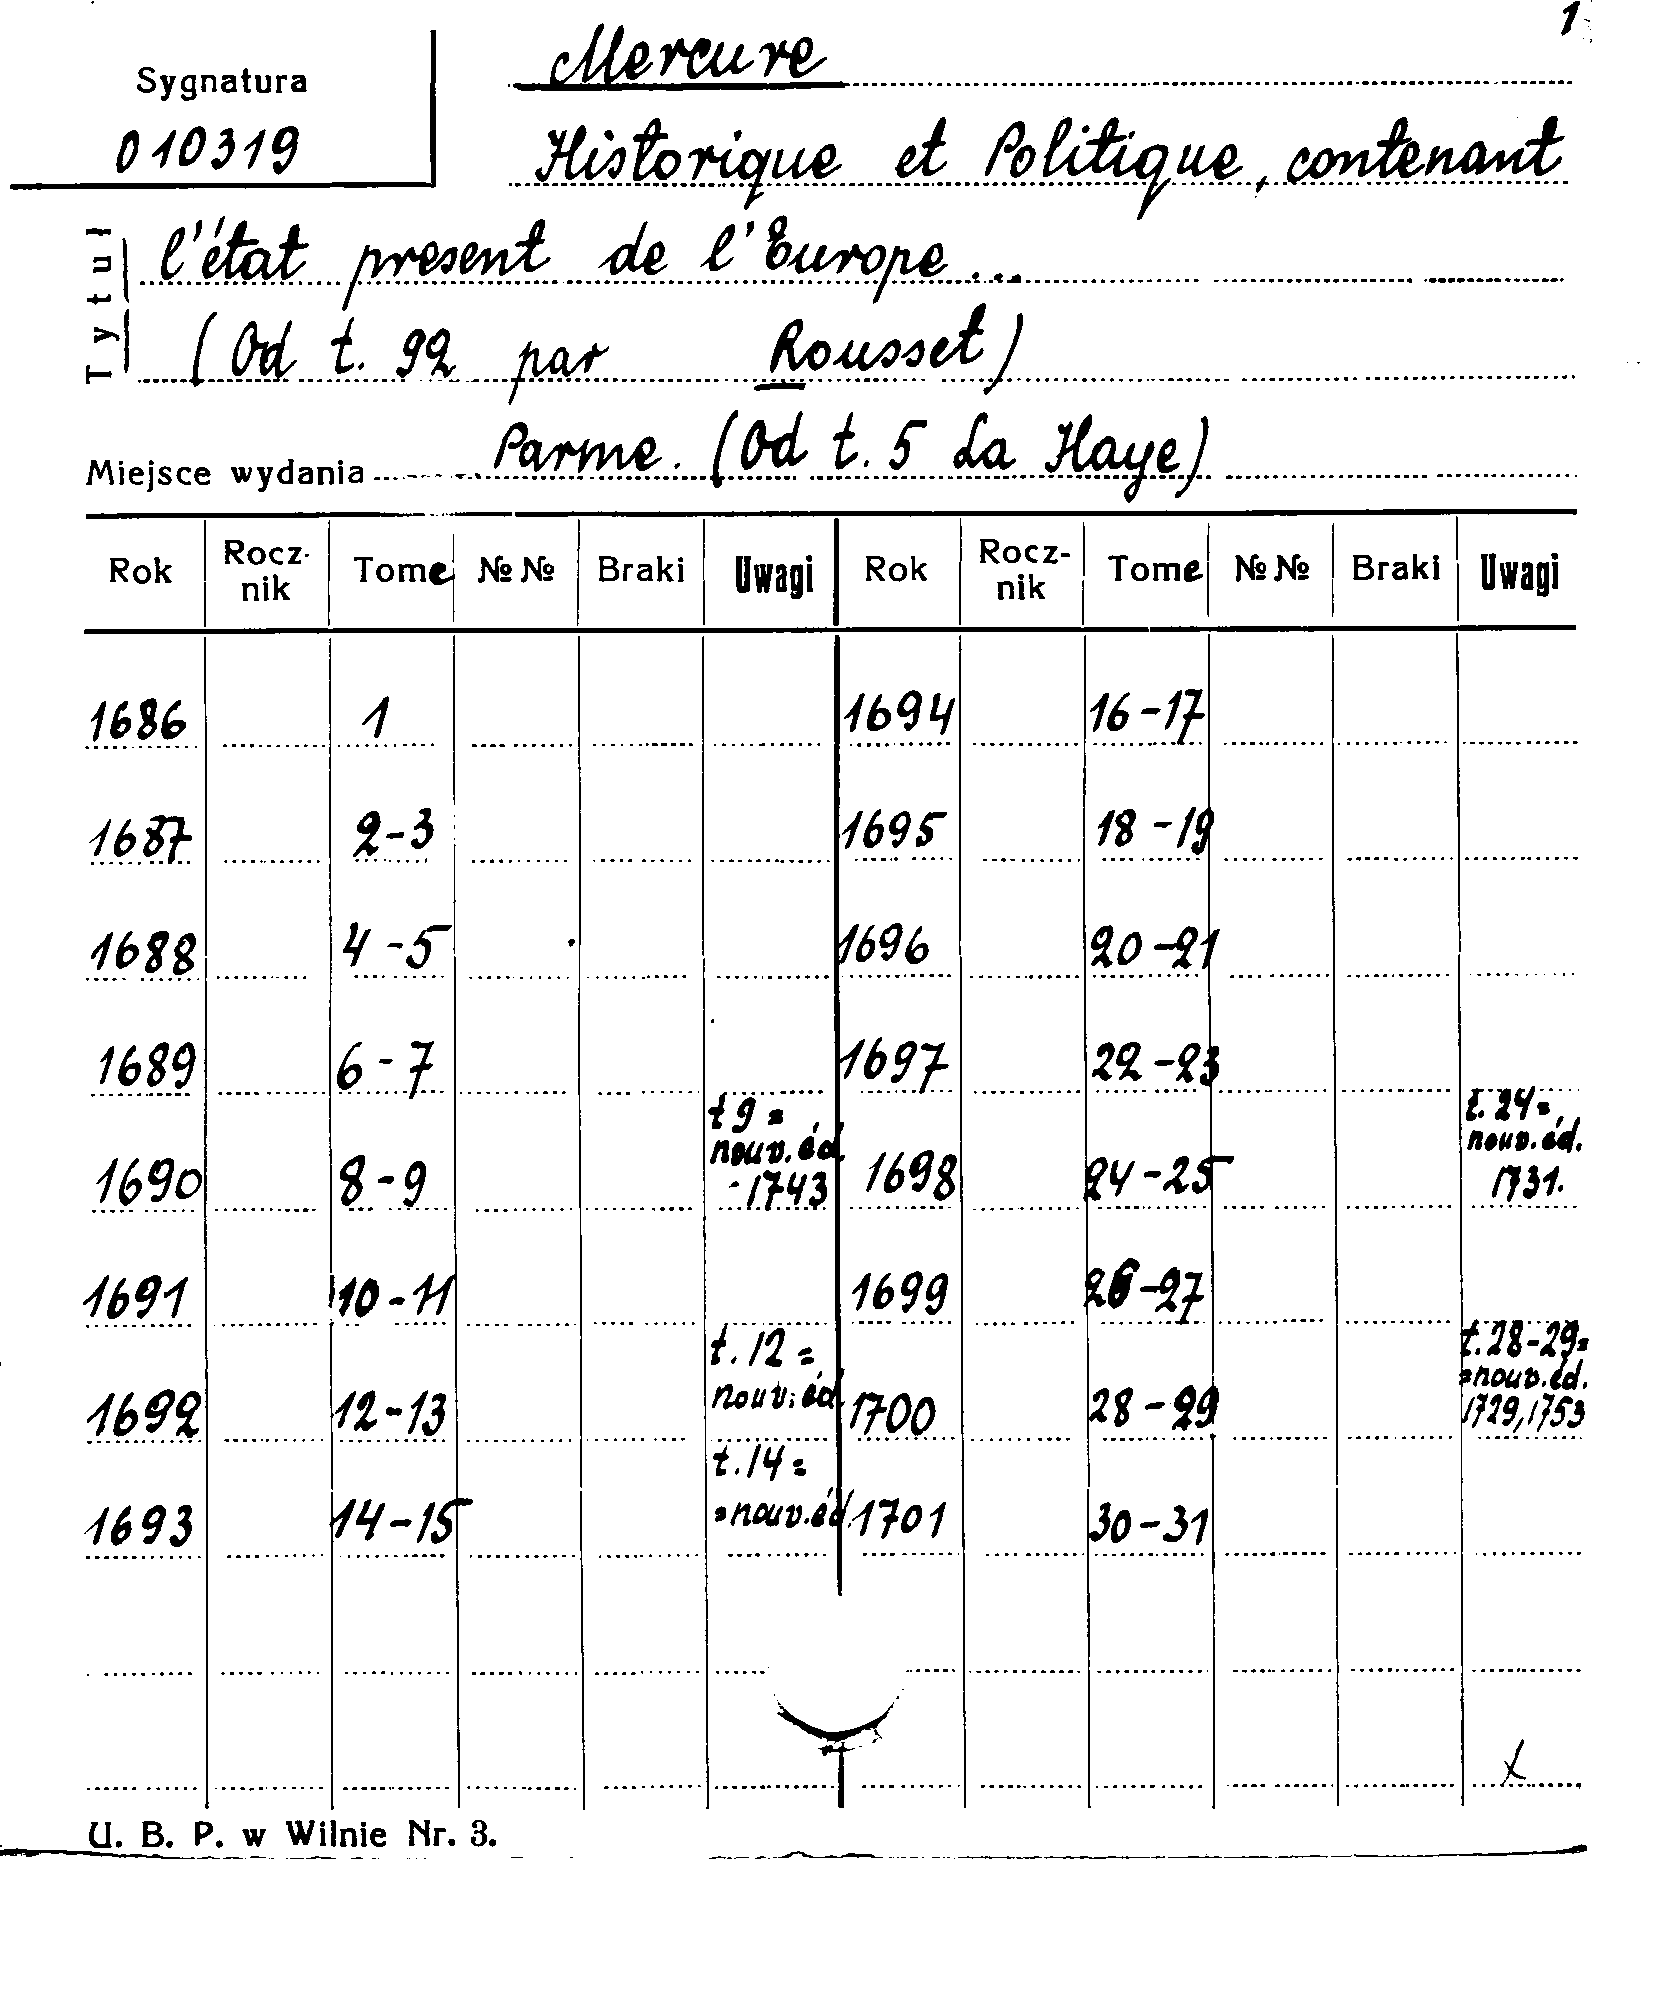 1
Sygnatura
010319
Mercure
Historique et Politique, contenant
Tytuł
l'état present de l'Europe...
(Od t. 92 par Rousset)
Miejsce wydania Parme. (Od t. 5 La Haye)
Rok Rocz-nik Tome №№ Braki Uwagi Rok Rocz-nik Tome №№ Braki Uwagi
1686 1 1694 16-17
1687 2-3 1695 18-19
1688 4-5 1696 20-21
1689 6-7 1697 22-23
1690 8-9 t 9= nouv. éd. 1743 1698 24-25 t. 24= nouv. éd. 1731.
1691 10-11 1699 26-27
1692 12-13 t. 12= nouv. éd. 1700 28-29 t. 28-29= =nouv. éd. 1729, 1753
1693 14-15 t. 14= =nouv. éd. 1701 30-31
x
U. B. P. w Wilnie Nr. 3.